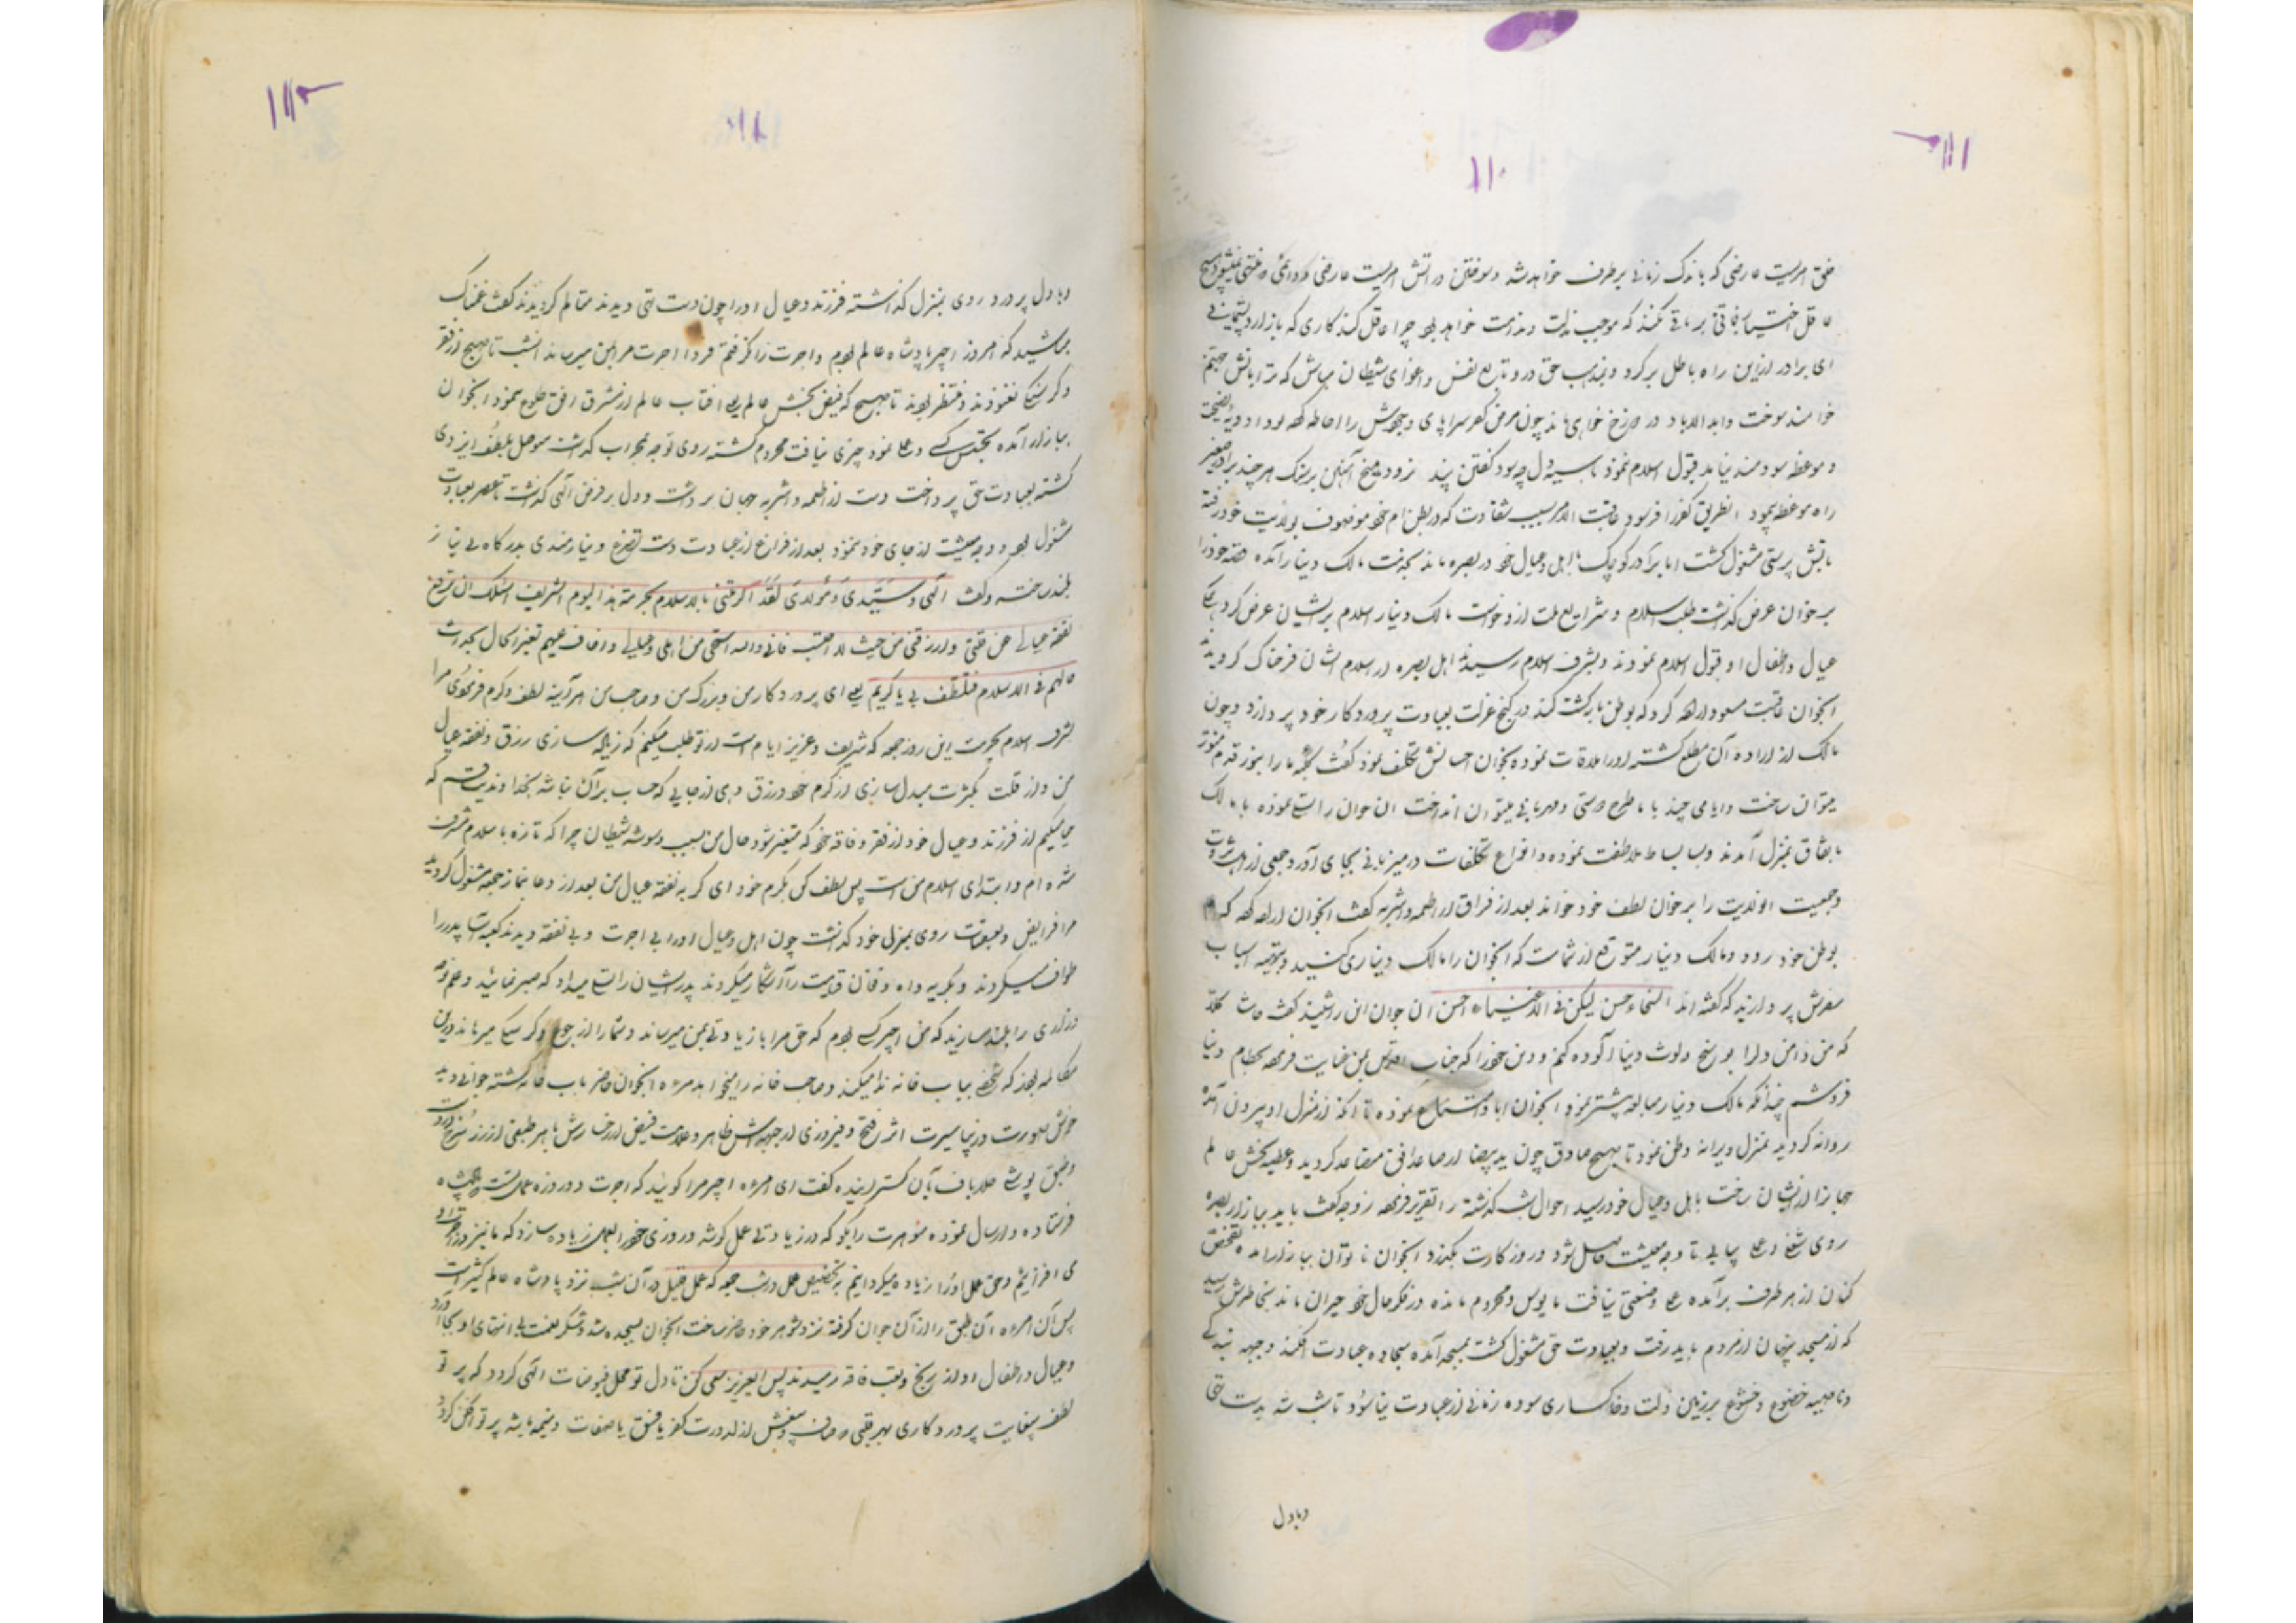 ۱۱۰
خلق امریست عارضی که باندک زمانی برطرف خواهد شد و سوختن در آتش امریست عارضی
عاقل اختیار فانی بر باقی نکند که موجب ذلت و ندامت خواهد بود چرا عاقل کند کاری که باز آرد پشیمانی
ای برادر ازین راه باطل برگرد و بمذهب حق در و تابع نفس و اغوای شیطان مباش که ترا بآتش جهنم
خواهند سوخت و ابد الاباد در دوزخ خواهی ماند چون مرض کفر سراپای وجودش را احاطه کرده بود ادویه نصیحت
و موعظه سودمند نیامد قبول اسلام ننمود با سیه دل چه سود گفتن پند نرود میخ آهنین بر سنگ هر چند برادر صغیر
راه موعظه پیمود عاقبت الامر بسبب شقاوت که در بطن ام خود
بآتش پرستی مشغول گشت اما برادر کوچک با اهل و عیال خود در بصره ماند بخدمت مالک دینار آمده قصه خود را
بر خوان عرض گذاشت طلب اسلام و شرایع ملت ازو خواست مالک دینار اسلام برایشان عرض کرد
عیال و اطفال او قبول اسلام نمودند و بشرف اسلام رسیدند اهل بصره از اسلام ایشان فرحناک گردیدند
آنجوان عاقبت مسعود اراده کرد که بوطن بازگشت کند در کنج عزلت بعبادت پروردگار خود پردازد و چون
مالک از اراده آن مطلع گشته او را ملاقات نموده
میتوان ساخت و ایامی چند با ما طرح دوستی و مهربانی میتوان انداخت آن جوان
باتفاق بمنزل آمدند و بساط ملاطفت نموده و انواع تکلفات در میزبانی بجای آورد و جمعی از اهل ثروت
و جمعیت انولایت را بر خوان لطف خود خواند بعد از فراق از اطعمه و اشربه گفت آنجوان اراده کرده که
بوطن خود رود و مالک دینار متوقع از شماست که آنجوان را مالک دیناری کنید و بتوجه اسباب
سفرش پردازید که گفته‌اند السخاء حسن لیکن فی الاغنیاء احسن آن جوان این را شنید گفت حاشا و کلا
که من دامن را بوسخ و لوث دنیا آلوده کنم و دین خود را که جناب اقدس بمن عنایت فرموده بحطام دنیا
فروشم چندانکه مالک دینار مبالغه بیشتر نمود آنجوان ابا و امتناع نموده تا آنکه از منزل او بیرون آمده
روانه گردید بمنزل ویرانه وطن نمود تا صبح صادق چون ید بیضا از صاعد افق متصاعد گردید و عطیه بخش عالم
باهل و عیال خود رسید احوال شب گذشته را تقریر فرموده زوجه گفت باید ببازار بصره
روی شغلی و عملی بیابی تا وجه معیشت حاصل شود و روز کارت بگذرد آنجوان ناتوان ببازار آمده تفحص
کنان از هر طرف برآمده عملی و صنعتی نیافت مایوس و محروم مانده در فکر حال خود حیران ماند بخاطرش رسید
که از مسجد پنهان از مردم باید رفت و بعبادت حق مشغول گشت بمسجد آمده سجاده عبادت افکند و جبهه
و ناصیه خضوع و خشوع بر زمین ذلت و خاکساری سوده زمانی از عبادت نیاسود تا شب شد بدست تهی
و با دل
و با دل پر درد روی بمنزل گذاشته فرزند و عیال او را چون دست تهی دیدند متالم گردیدند گفت غمناک
مباشید که امروز اجیر پادشاه عالم بودم و اجرت را نگرفتم فردا اجرت مرا بمن میرساند آنشب تا صبح از فقر
و گرسنگی نغنودند و منتظر بودند تا صبح که فیض بخش عالم یعنی آفتاب عالم از مشرق افق طلوع نمود آنجوان
ببازار آمده تجسس کسب و عمل نمود چیزی نیافت محروم گشته روی توجه بمحراب گذاشت متوصل بلطف ایزدی
گشته بعبادت حق پرداخت دست از اطعمه و اشربه جهان برداشت و دل بر فرض الهی گذاشت تا عصر بعبادت
مشغول بود و وجه معیشت از جای خود ننمود بعد از فراغ از عبادت دست تضرع و نیازمندی بدرگاه بی نیاز
بلند ساخته و گفت الهی و سیدی و مولای لقد اکرمتنی بالاسلام بحرمة هذا الیوم الشریف اسئلک ان ترفع
نفقة عیالی عن قلبی وارزقنی من حیث لا احتسب فانی والله استحی من اهلی و عیالی و اخاف علیهم تغیر الحال بحداثت
حالهم فی الاسلام فتلطف بی یا کریم یعنی ای پروردگار من و بزرگ من و صاحب من هر آینه لطف و کرم فرمودی مرا
بشرف اسلام بحرمت این روز جمعه که شریف و عزیز ایام است از تو طلب میکنم که زیاده سازی رزق و نفقه عیال
من و از قلت بکثرت مبدل سازی از کرم خود و رزق دهی از جایی که حساب بر آن نباشد بخداوندیت قسم که
حیا میکنم از فرزند و عیال خود از فقر و فاقه خود که متغیر شود حال من بسبب وسوسه شیطان چرا که تازه باسلام مشرف
شده‌ام و ابتدای اسلام من است پس لطف کن بکرم خود ای کریم نفقه عیال من بعد از دعا بنماز جمعه مشغول گردید
مر فرایض و تعقیبات روی بمنزل خود گذاشت چون اهل و عیال او را بی اجرت و بی نفقه دیدند کعبه آسا پدر را
طواف میکردند و بگریه و آه و فغان قیامت را آشکار میکردند پدر ایشان را تسلی میداد که صبر نمائید و علم نوحه
و زاری را بلند مسازید که من اجیر کسی بودم که حق مرا با زیادتی بمن میرساند و شما را از جوع و گرسنگی میرهاند درین
مکالمه بودند که شخصی بباب خانه ندا میکند و صاحب خانه را میخواهد مرءه آنجوان حاضر باب خانه گشته جوانی دید
خوش صورت و زیبا سیرت اثر فتح و فیروزی از جبهه‌اش ظاهر و علامت فیض از رخسارش باهر طبقی از زر سرخ
و طبق پوشی طلاباف بآن گسترانیده گفت ای مرءه اجیر مرا گوئید که اجرت دو روزه عمل
فرستاده و ارسال نموده شوهرت را بگو که در زیادتی عمل کوشد و روزی خود را بعمل زیاده سازد که ما نیز در اجرت او
می افزائیم و حق عمل او را زیاده میگردانیم بتخصیص عمل در شب جمعه که عمل قلیل در آن شب نزد پادشاه عالم کثیر است
پس آن مرءه آن طبق را از آن جوان گرفته نزد شوهر خود حاضر ساخت آنجوان بسجده شد و شکر نعمت بی انتهای او بجا آورد
و عیال و اطفال او از رنج و تعب فاقه رهیدند پس ای عزیز سعی کن تا دل تو محل فیوضات الهی گردد که پرتو
لطف بیغایت پروردگاری بهر قلبی